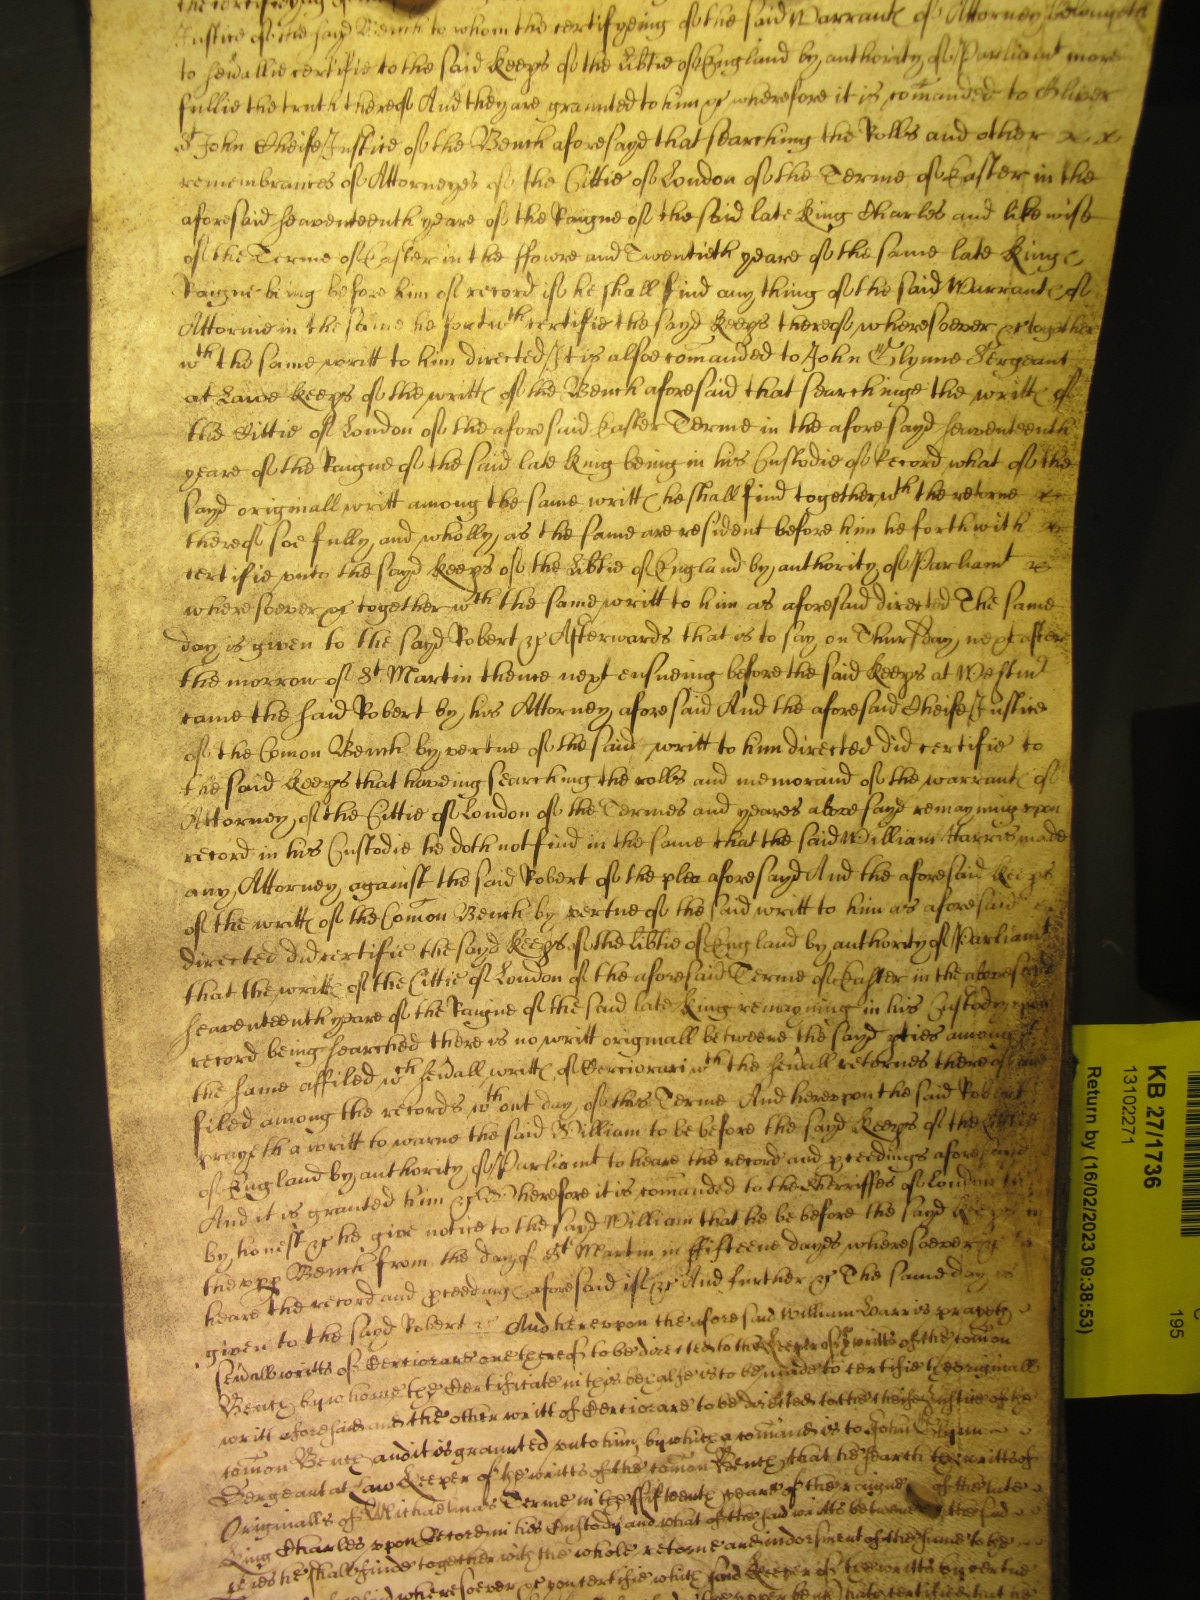 Justice of the sayd Bench to whom the certifyeing of the said Warrant of Attorney belongeth
to sevallie certifie to the said Keeps of the Libtie of England by authority of Parliamt more
fullie the truth thereof And they are graunted to him &c wherefore it is comanded to Oliver
St John Cheife Justice of the Bench aforesayd that searching the Rolls and other
remembrances of Attorneyes of the Cittie of London of the Terme of Easter in the
aforesaid seaventeenth yeare of the Raigne of the said late King Charles and likewise
of the Terme of Easter in the ffowre and Twentieth yeare of the same late King
Raigne being before him of record if he shall find any thing of the said Warrant of
Attorne in the same he forthwth certifie the sayd Keeps thereof wheresoever &c together
wth the same writt to him directed It is alsoe comanded to John Glynne Sergeant
at Lawe Keep of the writts of the Bench aforesaid that searchinge the writts of
the Cittie of London of the aforesaid Easter Terme in the aforesayd seaventeenth
yeare of the Raigne of the said late King being in his Custodie of Record what of the
sayd originall writt among the same writts he shall find together wth the retorne
thereof soe fully and wholly as the same are resident before him he forthwith
certifie unto the sayd Keeps of the Libtie of England by authority of Parliamt
wheresoever &c together wth the same writt to him as aforesaid directed The same
day is given to the sayd Robert &c Afterwards that is to say on Thursday next after
the morrow of St Martin thence next ensueing before the said Keeps at Westmr
came the said Robert by his Attorney aforesaid And the aforesaid Cheife Justice
of the Comon Bench by vertue of the said writt to him directed did certifie to
the said Keeps that haveing searching the rolls and memorand of the warrant of
Attorney of the Cittie of London of the Termes and yeares abovesayd remayning upon
record in his Custodie he doth not find in the same that the said William Harris made
any Attorney against the said Robert of the plea aforesayd And the aforesaid Keeps
of the writts of the Comon Bench by vertue of the said writt to him as aforesaid
directed did certifie the sayd Keeps of the libtie of England by authority of Parliamt
that the writts of the Cittie of London of the aforesaid Terme of Easter in the abovesayd
seaventeenth yeare of the Raigne of the said late King remayning in his Custody upon
record being searched there is no writt originall betweene the sayd pties among
the same affiled wch sevall writts of Cerciorari wth the sevall retornes thereof are
filed among the records wthout day of this Terme And hereupon the said Robert
prayeth a writt to warne the said William to be before the sayd Keeps of the Libtie
of England by authority of Parliamt to heare the record and pceedings aforesaid
And it is granted him &c Wherefore it is comanded to the Sherriffes of London
by honest &c he give notice to the sayd William that he be before the sayd Keeps in
the upp Bench from the day of St Martin in ffifteene dayes wheresoever &c to
heare the record and pceedings aforesaid if &c And further &c The same day is
given to the sayd Robert &c And hereupon the aforesaid William Harris prayeth
sevall writts of Cerciorare one thereof to be directed to the Keeper of ye writts of the comon
Bench by whome the Certificate in this behalfe is to be made to certifie the originall
writt aforesaid and the other writt of Cerciorare to be directed to the cheife Justice of the
comon Bench and it is graunted unto him, by which a comand is to John Glynn
Sergeant at Law Keeper of the writts of the comon Bench that he search the writts of
Originalls of Michaelmas Terme in the ffifteenth yeare of the raigne of the late
King Charles upon Record in his Custody and what of the said writts betweene the said
pties he shall finde together with the whole retorne and indorsment of the same to be
wheresoever &c certifie which said Keeper of the writts by vertue
KB 27/1736
13102271
Return by (16/02/2023 09:38:53)
195